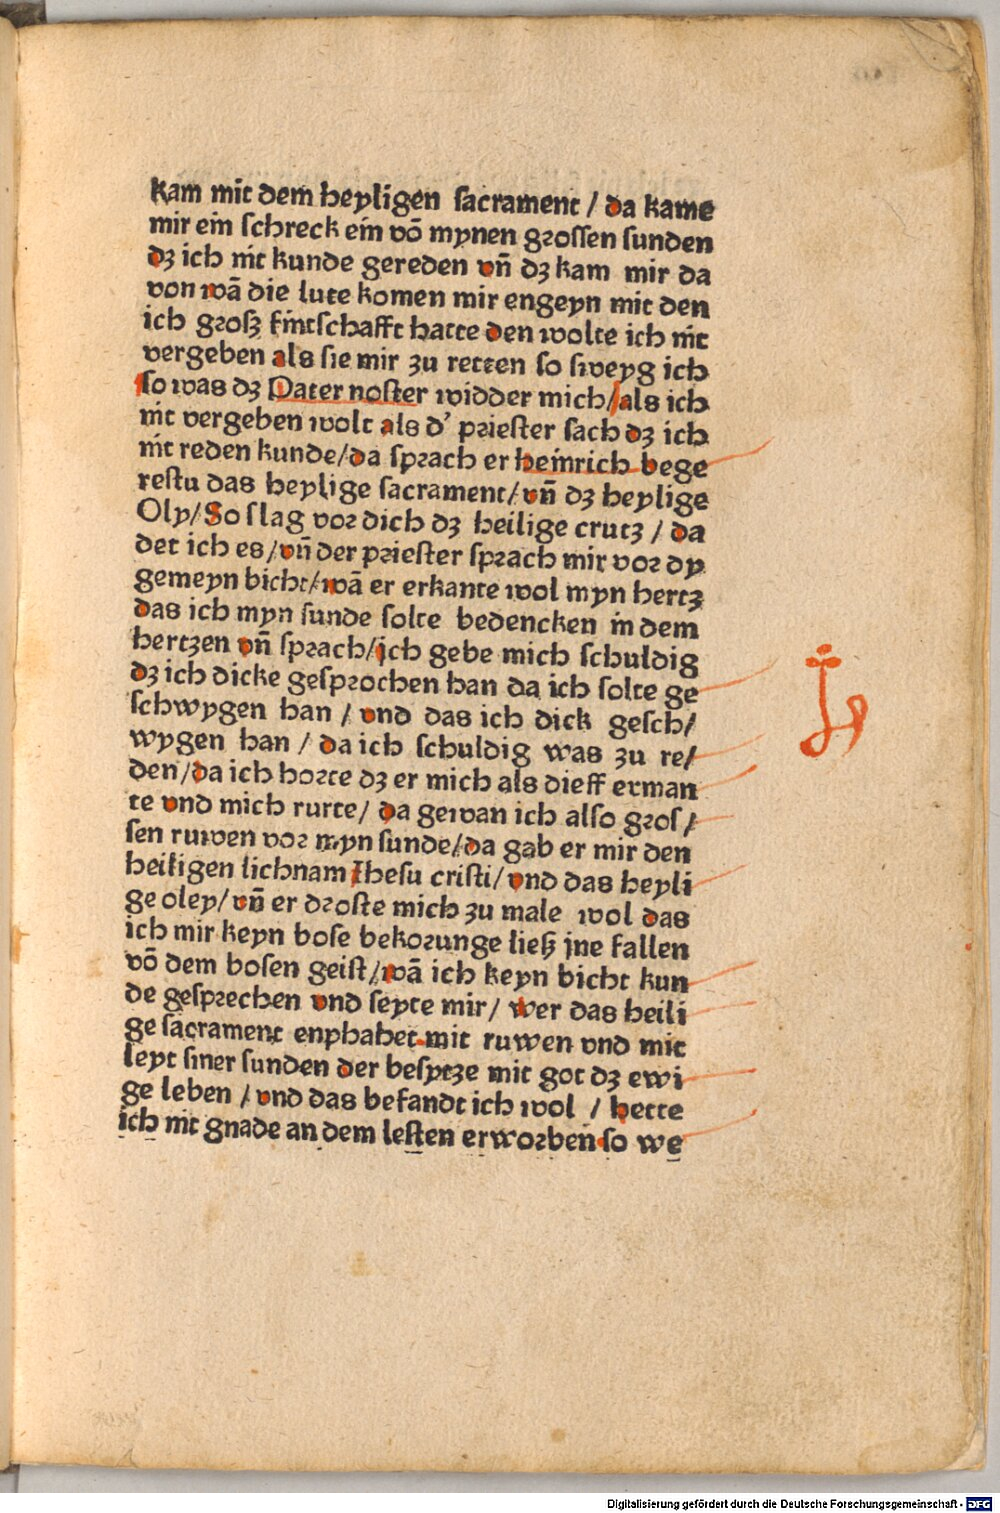 kam mit dem heyligen sacrament / da kame
mir ein schreck ein võ mynen grossen sunden
dz ich nit kunde gereden vñ dz kam mir da
von wã die lute komen mir engeyn mit den
ich groß fintschafft hatte den wolte ich nit
vergeben als sie mir zu retten so sweyg ich
so was dz Pater noster widder mich/als ich
nit vergeben wolt als d' priester sach dz ich
nit reden kunde/da sprach er heinrich bege
restu das heylige sacrament/vñ dz heylige
Oly/So slag vor dich dz heilige crutz / da
det ich es/vñ der priester sprach mir vor dy
gemeyn bicht/wã er erkante wol myn hertz
das ich myn sunde solte bedencken in dem
hertzen vñ sprach/ich gebe mich schuldig
dz ich dicke gesprochen han da ich solte ge
schwygen han / vnd das ich dick gesch/
wygen han / da ich schuldig was zu re/
den/da ich horte dz er mich als dieff erman
te vnd mich rurte/ da gewan ich also gros/
sen ruwen vor myn sunde/da gab er mir den
heiligen lichnam Jhesu cristi/vnd das heyli
ge oley/vñ er droste mich zu male wol das
ich mir keyn bose bekorunge ließ jne fallen
võ dem bosen geist/wã ich keyn bicht kun
de gesprechen vnd seyte mir/ wer das heili
ge sacrament enphahet mit ruwen vnd mit
leyt siner sunden der besytze mit got dz ewi
ge leben / vnd das befandt ich wol / hette
ich nit gnade an dem lesten erworben so we
Digitalisierung gefördert durch die Deutsche Forschungsgemeinschaft - DFG